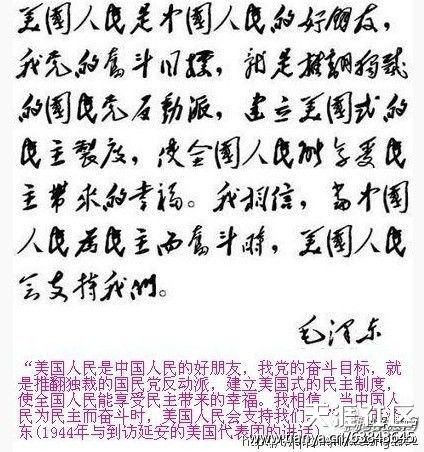 美國人民是中国人民的好朋友，
我党的奮斗目標，就是推翻獨裁
的國民党反動派，建立美國式的
民主製度，使全國人民能享受民
主帶來的幸福。我相信，當中國
人民為民主而奮斗時，美國人民
会支持我們。
毛泽东
“美国人民是中国人民的好朋友，我党的奋斗目标，就
是推翻独裁的国民党反动派，建立美国式的民主制度，
使全国人民能享受民主带来的幸福。我相信，当中国人
民为民主而奋斗时，美国人民会支持我们
东(1944年与到访延安的美国代表团的讲话)
天涯社区